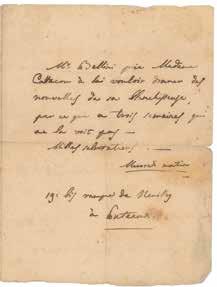 Mr Bellini prie Madame
de lui vouloir donner des
nouvelles de sa
par ce que a trois semaines que
ne la voit pas —
Milles salutations. —
Mercredi matin
19: bis rampe de Neuilly
à Puteaux